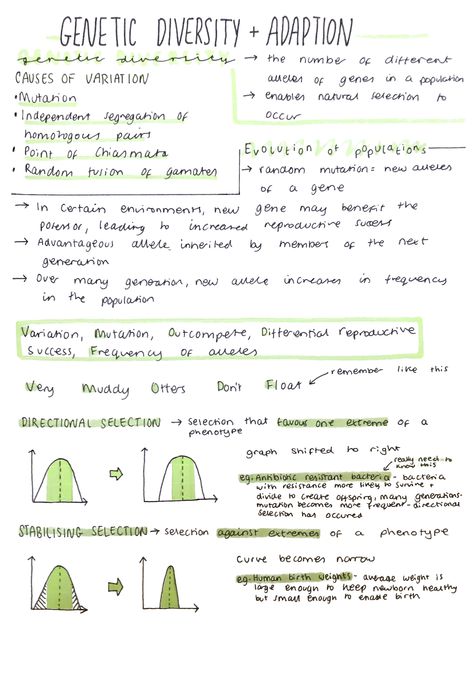 GENETIC DIVERSITY + ADAPTION
genetic diversity
→ the number of different
alleles of genes in a population
→ enables natural selection to
occur
CAUSES OF VARIATION
• Mutation
• Independent segregation of
homologous pairs
• Point of Chiasmata
• Random fusion of gametes
Evolution of populations
→ random mutation = new alleles
of a gene
→ In certain environments, new gene may benefit the
possessor, leading to increased reproductive success
→ Advantageous allele inherited by members of the next
generation
→ Over many generation, new allele increases in frequency
in the population
Variation, Mutation, Outcompete, Differential reproductive
success, Frequency of alleles
remember like this
Very Muddy Otters Don't Float
DIRECTIONAL SELECTION → selection that favours one extreme of a
phenotype
graph shifted to right
really need to
know this
eg: Antibiotic resistant bacteria - bacteria
with resistance more likely to survive +
divide to create offspring, many generations-
mutation becomes more frequent - directional
selection has occured
STABILISING SELECTION → selection against extremes of a phenotype
Curve becomes narrow
eg: Human birth weights - average weight is
large enough to keep newborn healthy
but small enough to enable birth